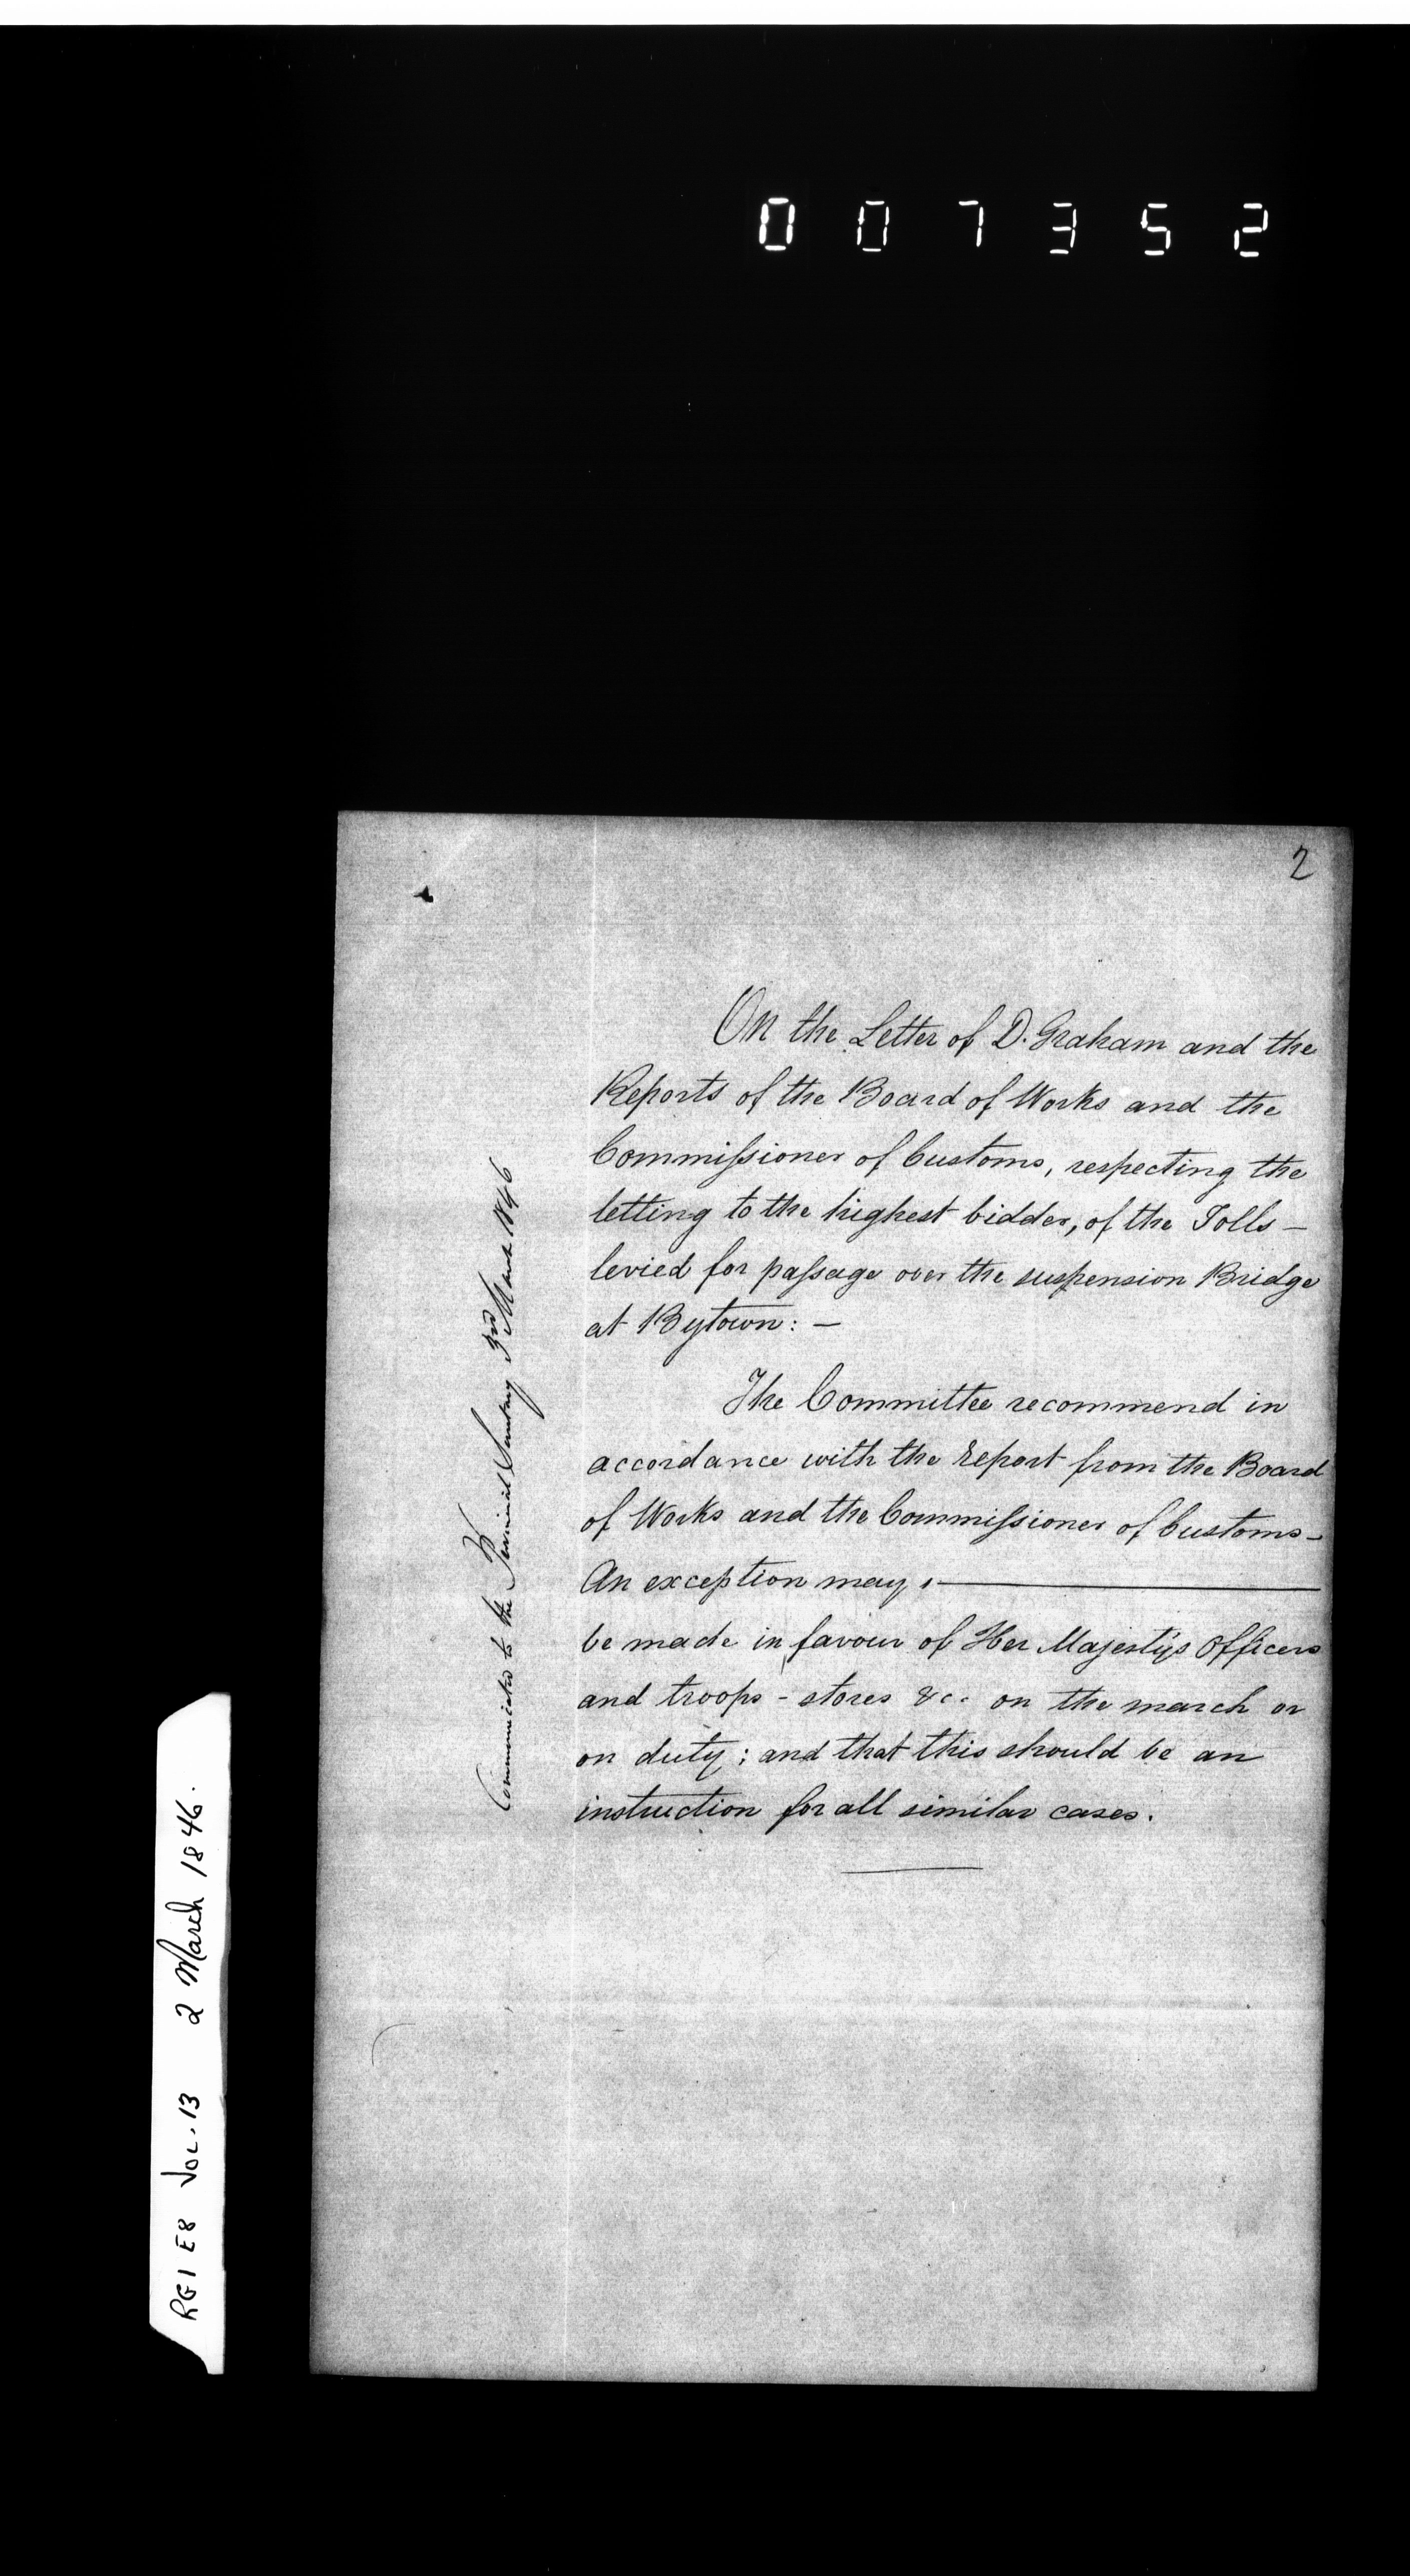 007352
2
On the Letter of D. Graham and the
Reports of the Board of Works and the
Commissioner of Customs, respecting the
letting to the highest bidder, of the Tolls —
levied for passage over the suspension Bridge
at Bytown: —
The Committee recommend in
accordance with the report from the Board
of Works and the Commissioner of Customs —
An exception may, —
be made in favour of Her Majesty's Officers
and troops - stores &c. on the march or
on duty; and that this should be an
instruction for all similar cases.
Communicated to the Provincial Secretary 3rd March 1846
RG1 E8 VOL. 13 2 March 1846.